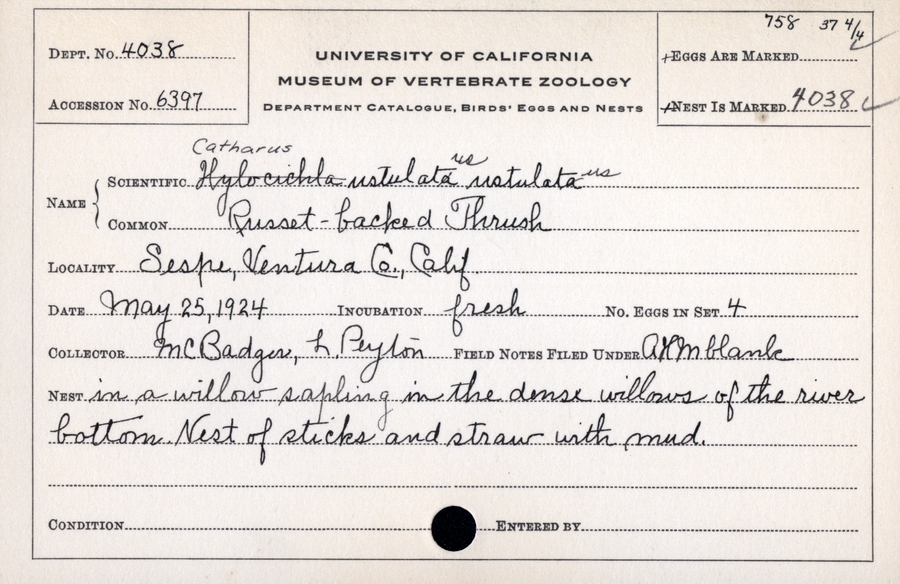 758 37 4/4
DEPT. No. 4038
UNIVERSITY OF CALIFORNIA
+EGGS ARE MARKED
MUSEUM OF VERTEBRATE ZOOLOGY
ACCESSION No. 6397
DEPARTMENT CATALOGUE, BIRDS' EGGS AND NESTS
+NEST IS MARKED 4038
Catharus
us us
NAME { SCIENTIFIC Hylocichla ustulata ustulata
COMMON Russet-backed Thrush
LOCALITY Sespe, Ventura Co., Calif.
DATE May 25, 1924 INCUBATION fresh No. EGGS IN SET 4
COLLECTOR McBadger, L. Peyton FIELD NOTES FILED UNDER blank
NEST in a willow sapling in the dense willows of the river
bottom. Nest of sticks and straw with mud.
CONDITION ENTERED BY